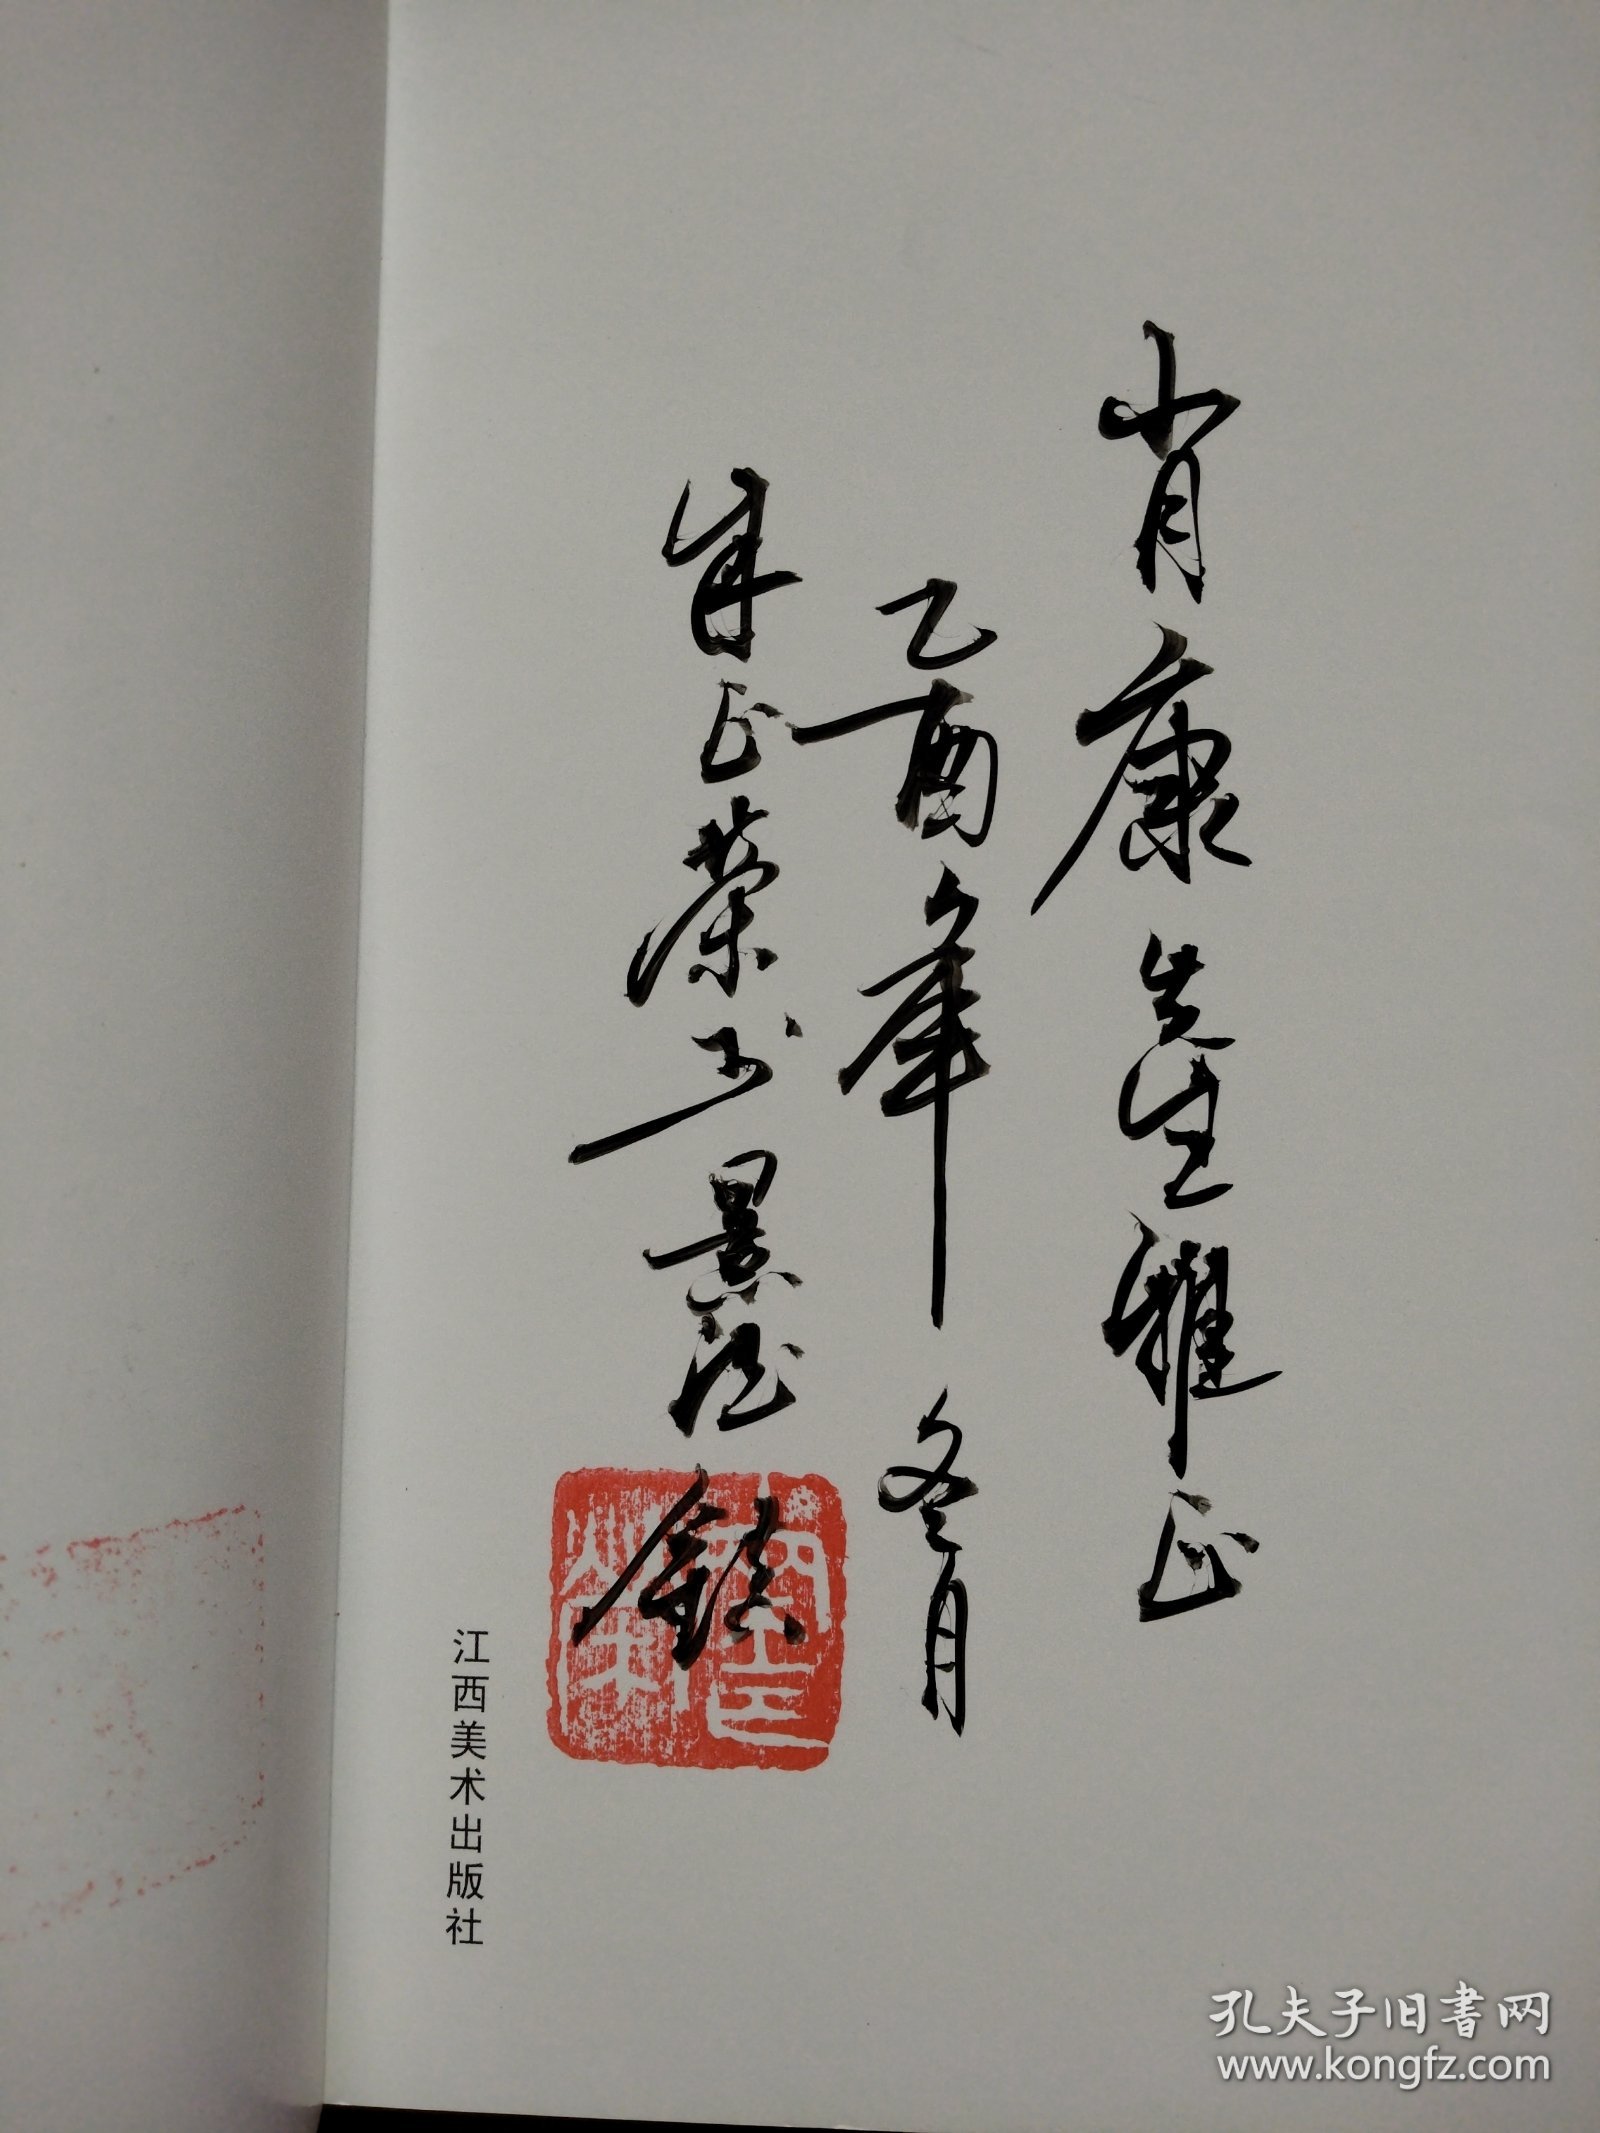 肖康先生雅正
乙酉年冬月
朱正荣于景德镇
江西美术出版社
孔夫子旧书网
www.kongfz.com